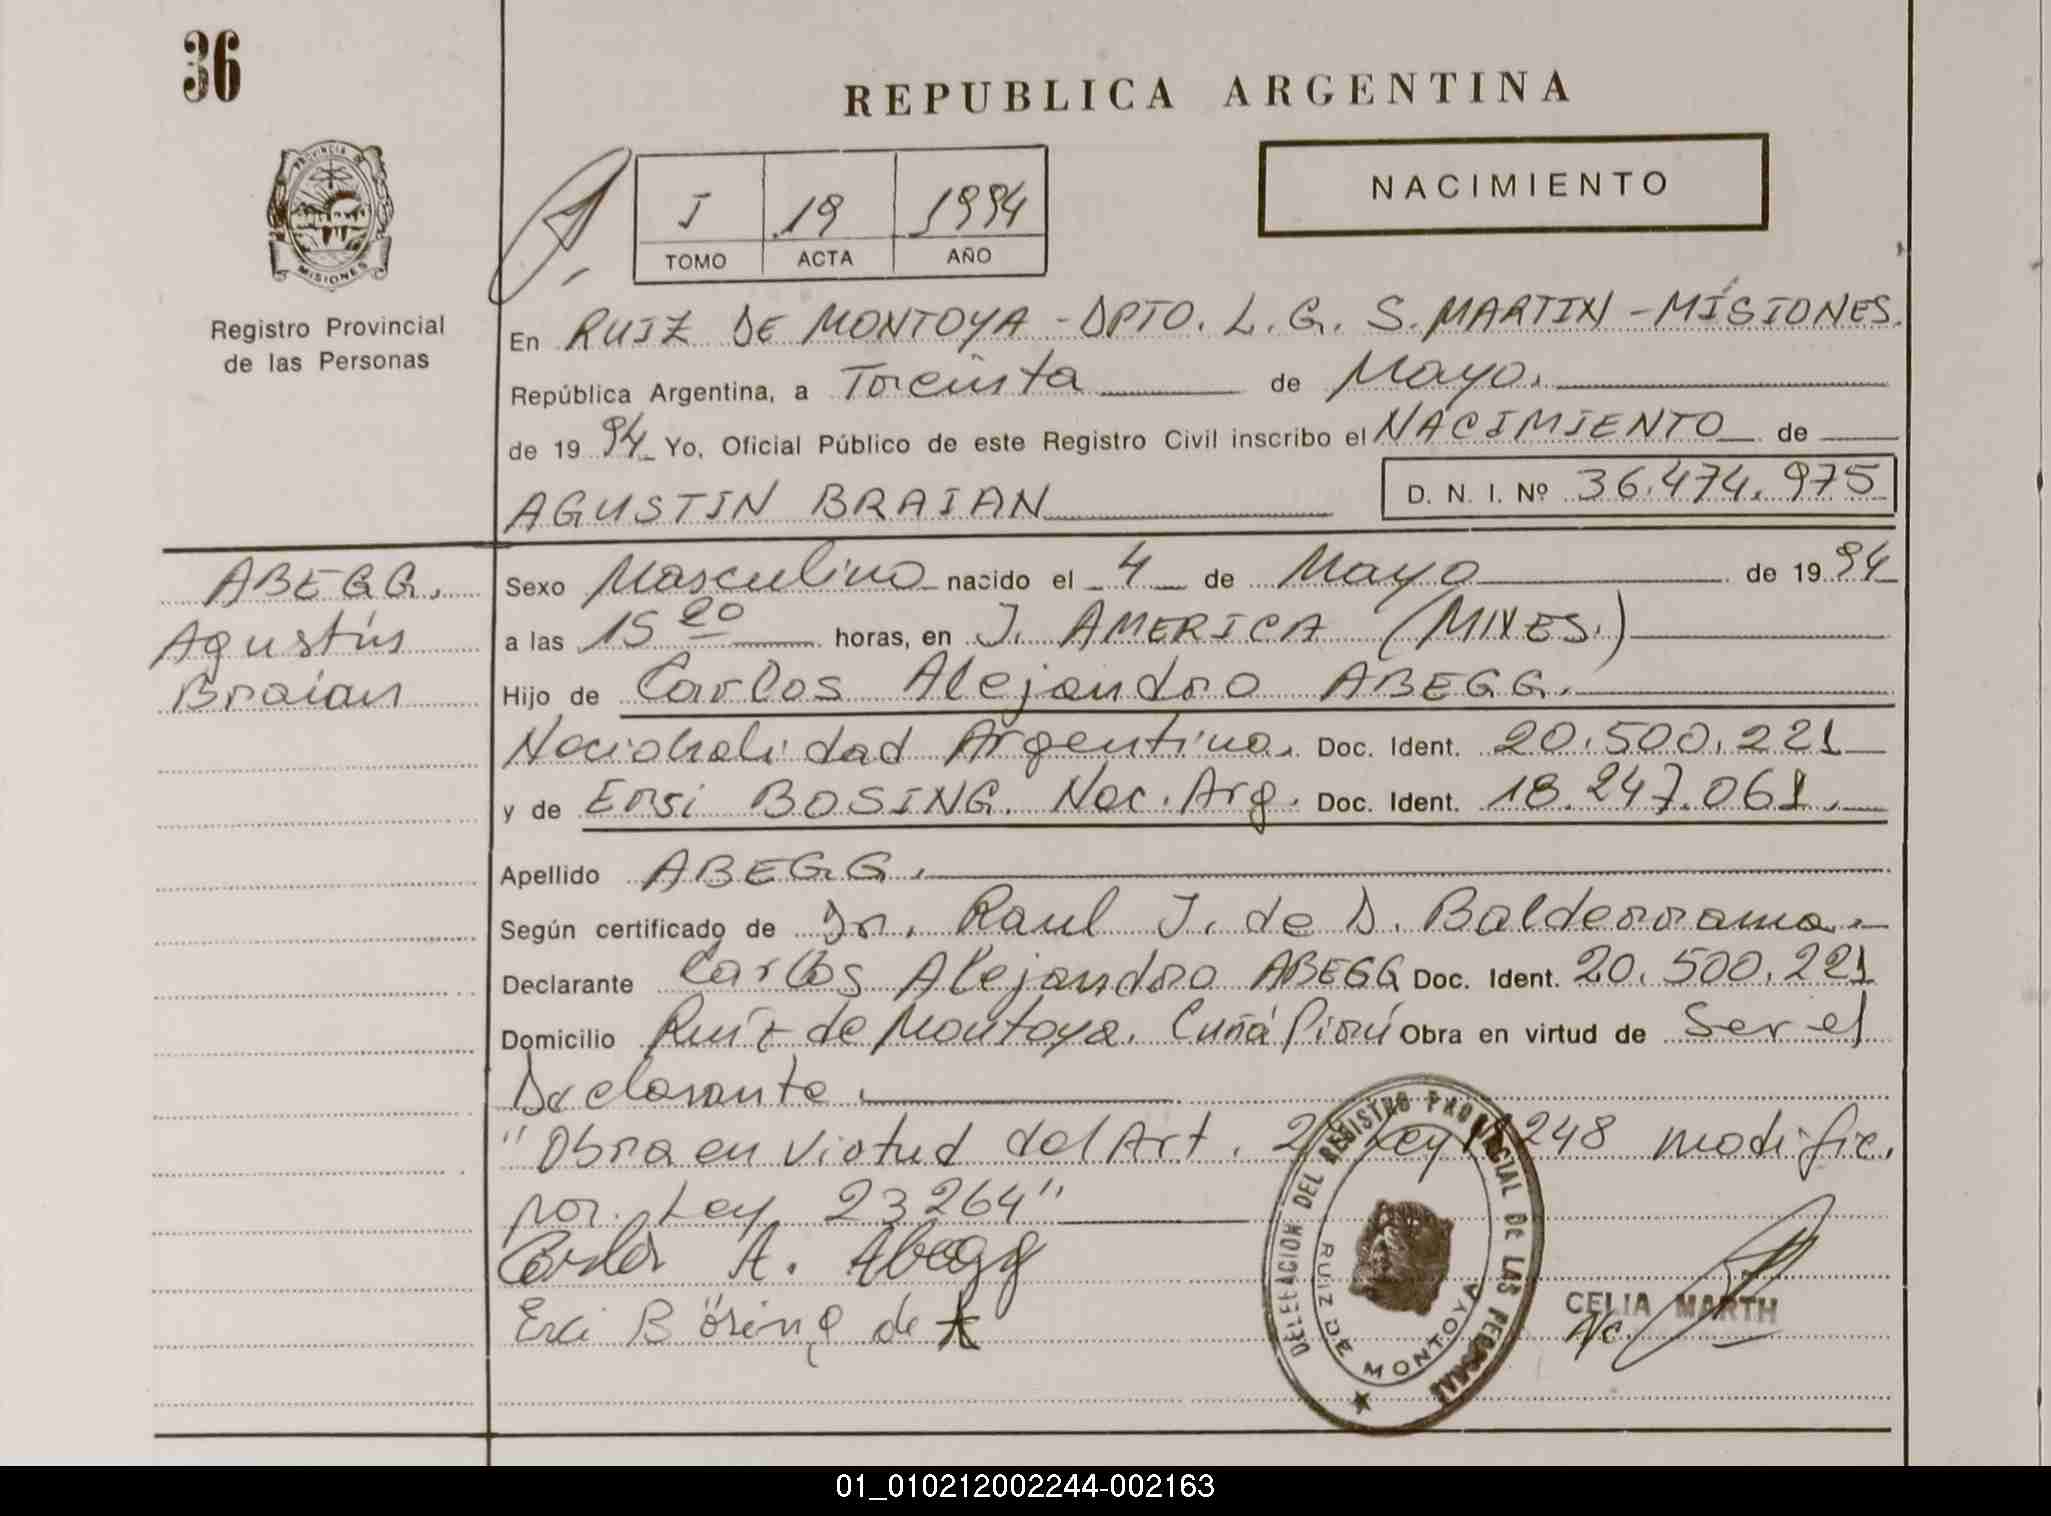 36
REPUBLICA ARGENTINA
PROVINCIA DE
MISIONES
Registro Provincial
de las Personas
I 19 1994
TOMO ACTA AÑO
NACIMIENTO
En RUIZ DE MONTOYA - DPTO. L. G. S. MARTIN - MISIONES.
República Argentina, a Treinta de Mayo.
de 19 94 Yo, Oficial Público de este Registro Civil inscribo el NACIMIENTO de
AGUSTIN BRAIAN D. N. I. Nº 36.474.975
ABEGG.
Agustín
Braian
Sexo Masculino nacido el 4 de Mayo de 19 94
a las 15 20 horas, en J. AMERICA (MNES.)
Hijo de Carlos Alejandro ABEGG.
Nacionalidad Argentina. Doc. Ident. 20.500.221
y de Ersi BOSING. Nac. Arg. Doc. Ident. 18.247.061.
Apellido ABEGG.
Según certificado de Dr. Raul J. de D. Balderrama.
Declarante Carlos Alejandro ABEGG Doc. Ident. 20.500.221
Domicilio Ruiz de Montoya. Cuñá Pirú Obra en virtud de Ser el
Declarante.
"Obra en virtud del Art. 2 Ley 18248 modific.
por Ley 23264"
Carlos A. Abegg
Erci Bösing de A
DELEGACION DEL REGISTRO PROVINCIAL DE LAS PERSONAS
RUIZ DE MONTOYA
CELIA MARTH
01_010212002244-002163